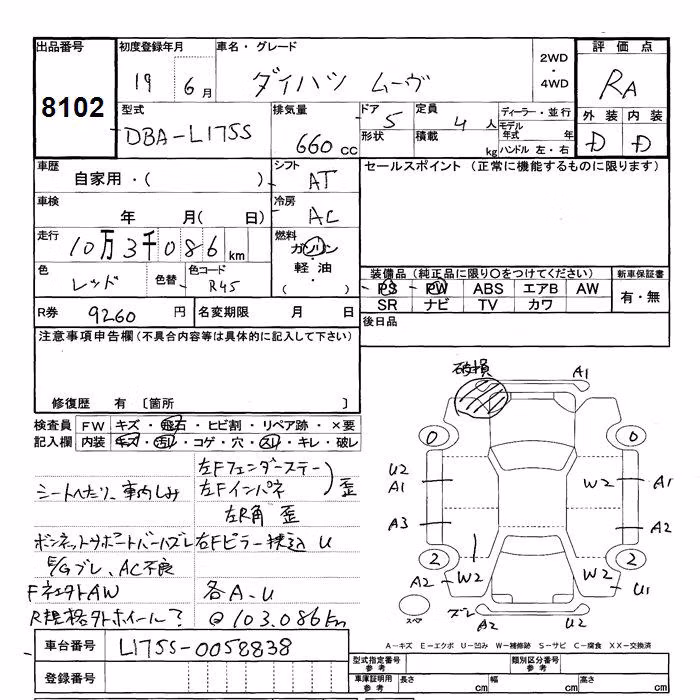 出品番号 初度登録年月 車名・グレード 2WD・4WD 評価点
8102 19 6月 ダイハツ ムーヴ RA
型式 排気量 ドア 定員 ディーラー・並行 外装 内装
DBA-L175S 660 cc 5 4人 モデル年式 年 D D
形状 積載 kg ハンドル 左・右
車歴 シフト セールスポイント（正常に機能するものに限ります）
自家用・（ ） AT
車検 冷房
年 月（ 日） AC
走行 燃料
10万3千086km ガソリン・軽油・（ ）
色 色替 色コード 装備品（純正品に限り○をつけてください） 新車保証書
レッド R45 PS PW ABS エアB AW 有・無
SR ナビ TV カワ
R券 9260円 名変期限 月 日 後日品
注意事項申告欄（不具合内容等は具体的に記入して下さい）
修復歴 有 〔箇所 〕
検査員 FW キズ・飛石・ヒビ割・リペア跡・×要
記入欄 内装 キズ・汚レ・コゲ・穴・スレ・キレ・破レ
左Fフェンダーステー
シートへたり、車内しみ 左Fインパネ 歪
左R角 歪
ボンネットサポートバーハズレ 左Fピラー U
E/Gブレ、AC不良
FネクトAW 各A、U
R規格外ホイール? @103.086km
破損 A1
0 0
U2
A1 W2 A1
A3 A2
2 2
A2 W2 W2 U1
スペア ズレ A2 U2
車台番号 L175S-0058838
登録番号
A－キズ E－エクボ U－凹み W－補修跡 S－サビ C－腐食 XX－交換済
型式指定番号参考 類別区分番号参考
車庫証明用参考 長さ cm 幅 cm 高さ cm